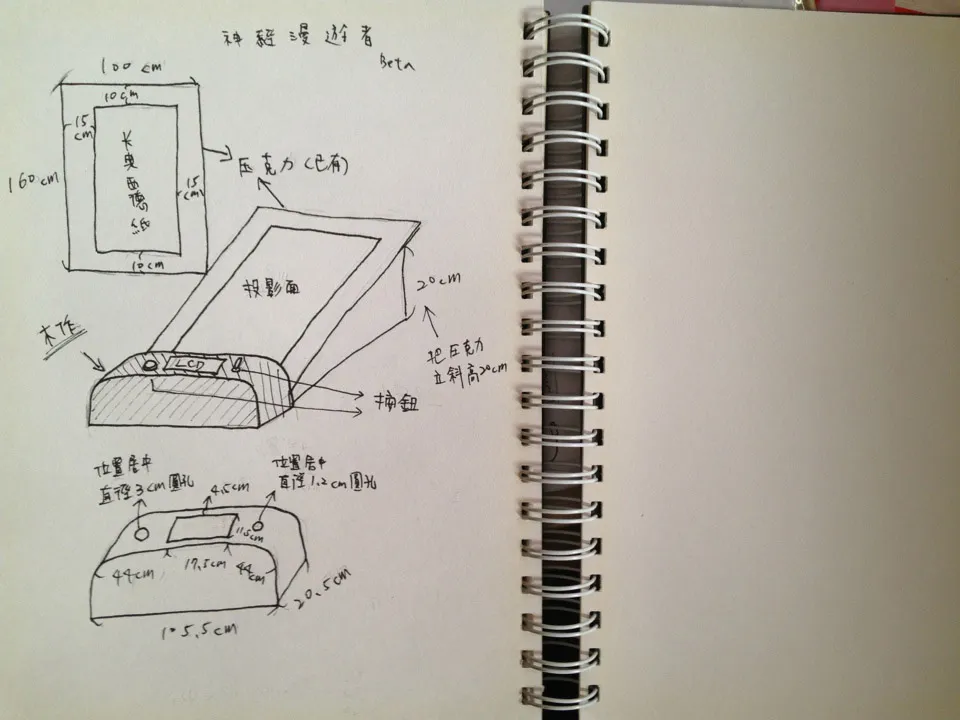 神經漫遊者
Beta
100 cm
10cm
15
cm
卡典西德紙
160cm
15
cm
10cm
压克力(已有)
投影面
20cm
木作
LCD
把压克力
立斜高20cm
按鈕
位置居中
直徑3cm圓孔
4.5cm
位置居中
直徑1.2cm圓孔
44cm
17.5cm
44
cm
20.5cm
105.5cm